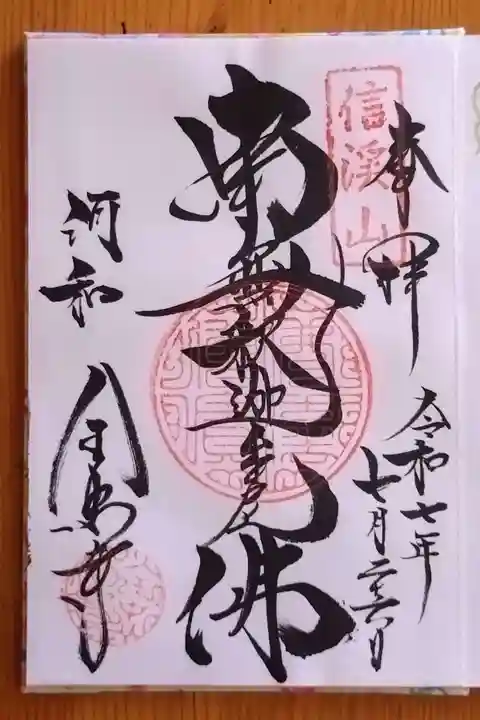 奉拝
信溪山
令和七年
七月二十六日
南無釈迦牟尼佛
河和
全忠寺